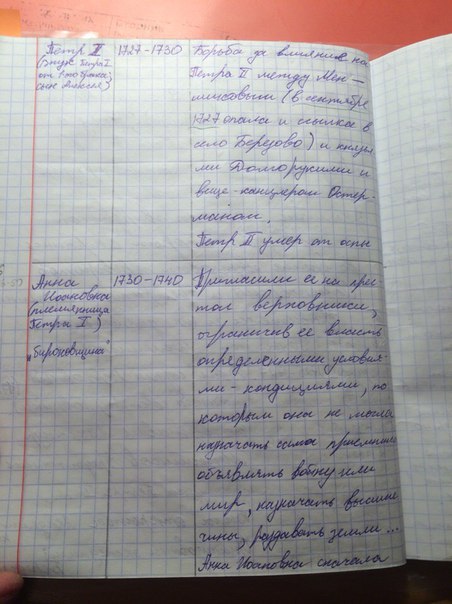 Петр II 1727-1730 Борьба за влияние на
(внук Петра I Петра II между Мен-
от 1-ого брака, шиковым (в сентябре
сын Алексея) 1727 опала и ссылка в
село Березово) и князь
ями Долгорукими и
вице-канцлером Остер-
маном.
Петр II умер от оспы
Анна 1730-1740 Пригласили ее на прес
Иоановна тол верховники,
(племянница ограничив ее власть
Петра I) определенными условия-
"бироновщина" ми-кондициями, по
которым она не могла
назначать сама приемника
объявлять войну или
мир, назначать высшие
чины, раздавать земли...
Анна Иоановна сначала